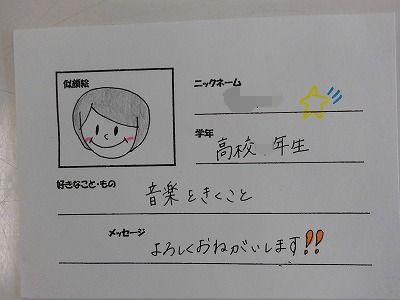 似顔絵
ニックネーム
学年
高校 年生
好きなこと・もの
音楽をきくこと
メッセージ
よろしくおねがいします!!